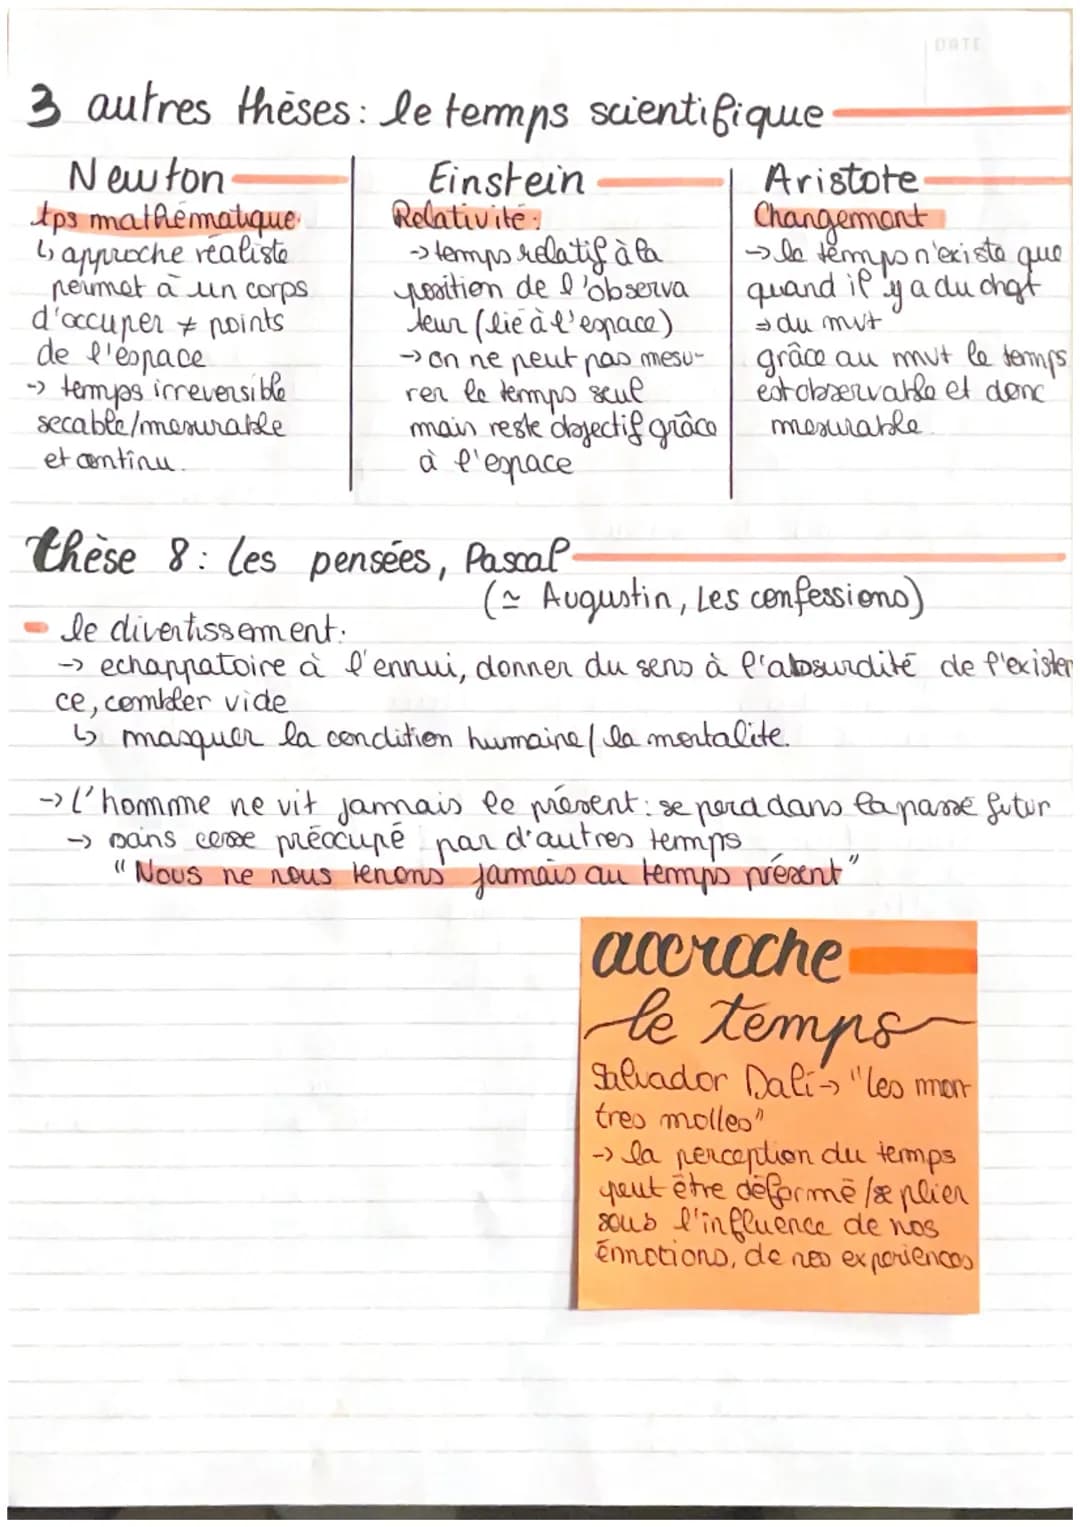 DATE
3 autres thèses: le temps scientifique
Newton
tps mathématique.
↳ approche réaliste
permet à un corps
d'occuper ≠ points
de l'espace
-> temps irreversible
secable/mesurable
et continu.
Einstein
Relativité:
-> temps relatif à la
position de l'observa
teur (lié à l'espace)
-> on ne peut pas mesu-
rer le temps seul
mais reste objectif grâce
à l'espace
Aristote
Changement
-> le temps n'existe que
quand il y a du chgt
⇒ du mvt
grâce au mvt le temps
est observable et donc
mesurable.
thèse 8: Les pensées, Pascal
(≃ Augustin, Les confessions)
- le divertissement:
-> echappatoire à l'ennui, donner du sens à l'absurdité de l'existen
ce, combler vide
↳ masquer la condition humaine/ la mortalite.
-> L'homme ne vit jamais le présent: se perd dans la passé futur
-> sans cesse préccupé par d'autres temps
"Nous ne nous tenons jamais au temps présent"
accroche
le temps
Salvador Dalí -> "les mon
tres molles"
-> la perception du temps
peut être déformé /se plier
sous l'influence de nos
émotions, de nos experiences